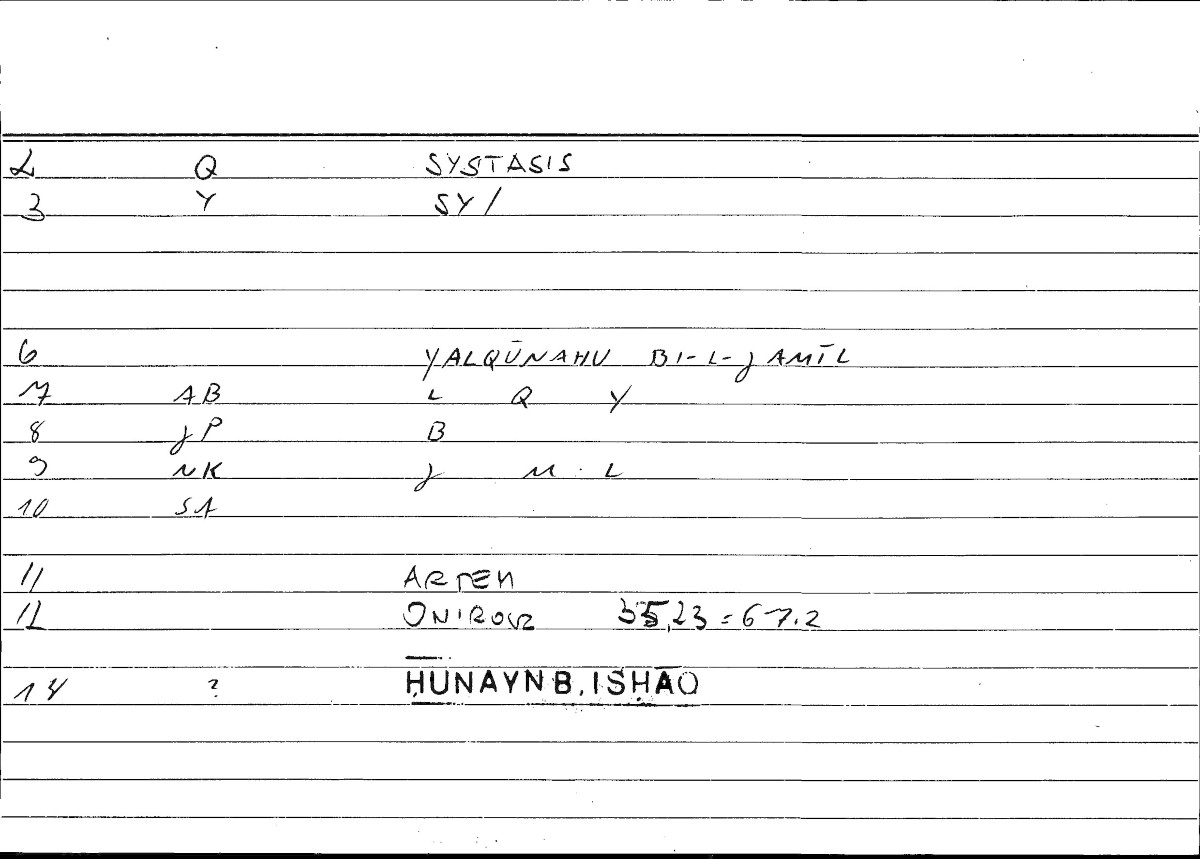 2 Q SYSTASIS
3 Y SY/
6 YALQŪNAHU BI-L-JAMĪL
7 AB L Q Y
8 JP B
9 NK J M L
10 SA
11 ARTEM
12 ONIROCR 35,23 = 67.2
14 ? ḤUNAYN B. ISḤĀQ